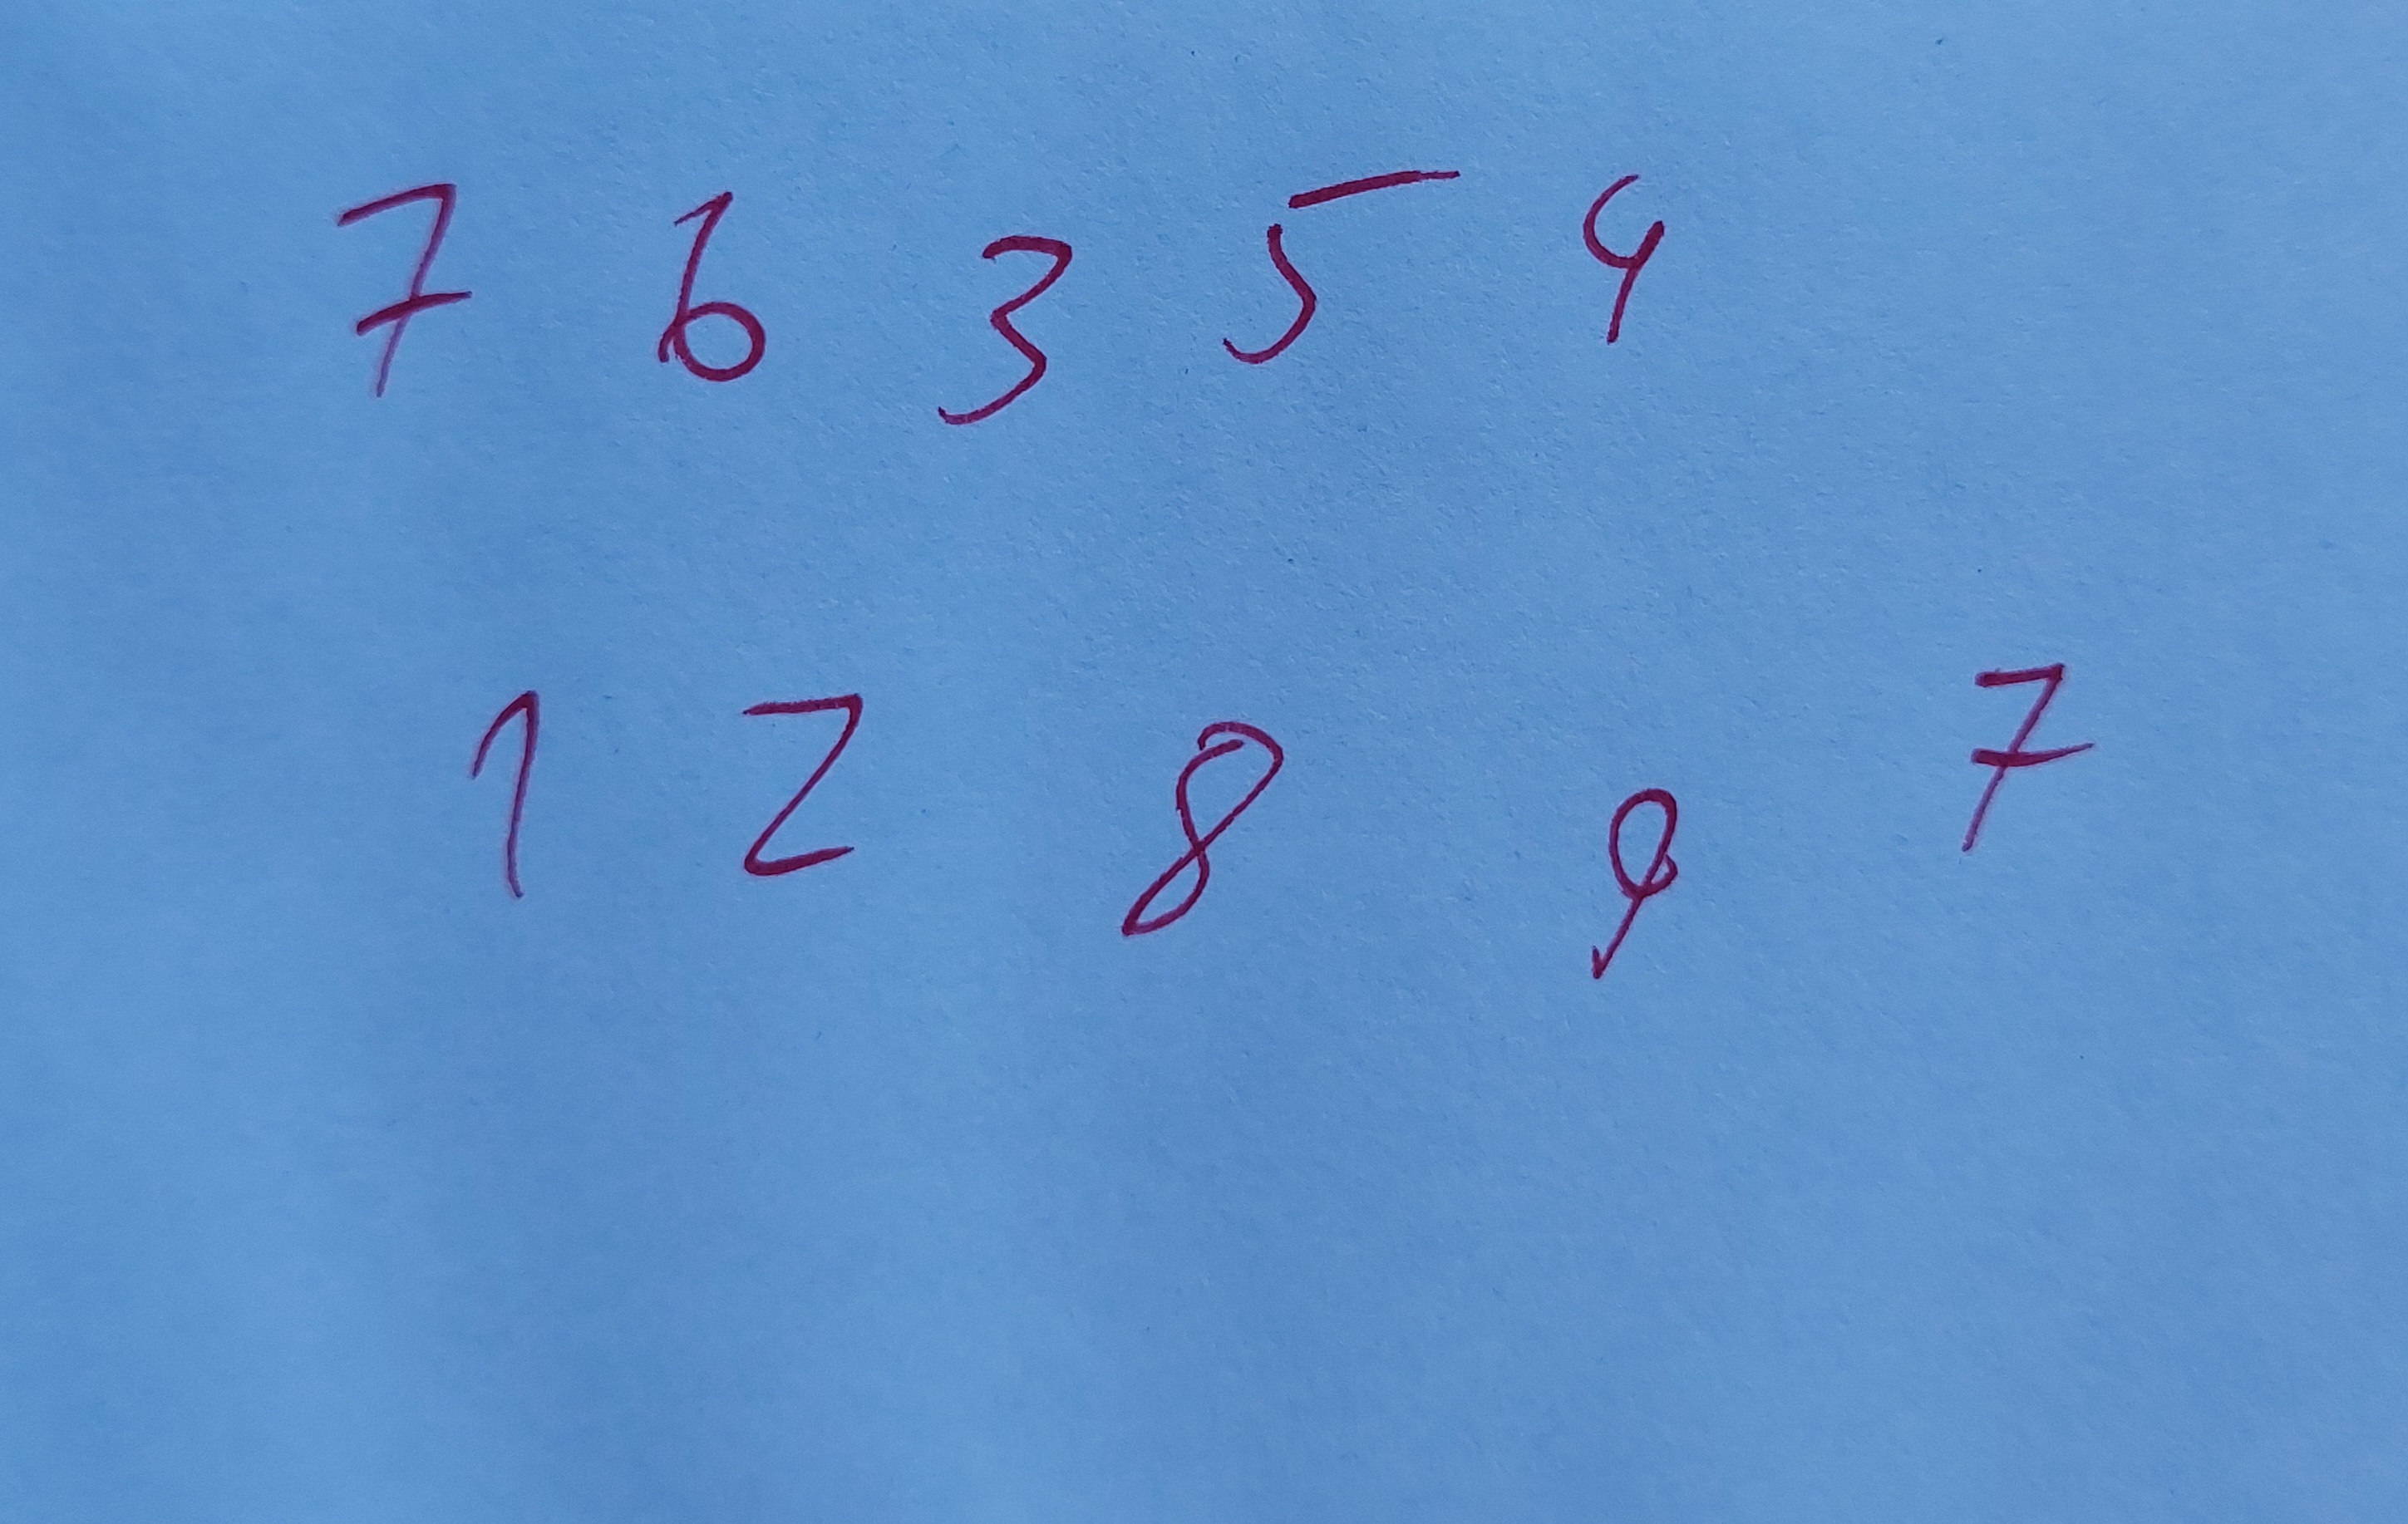 7 6 3 5 4
1 2 8 9 7